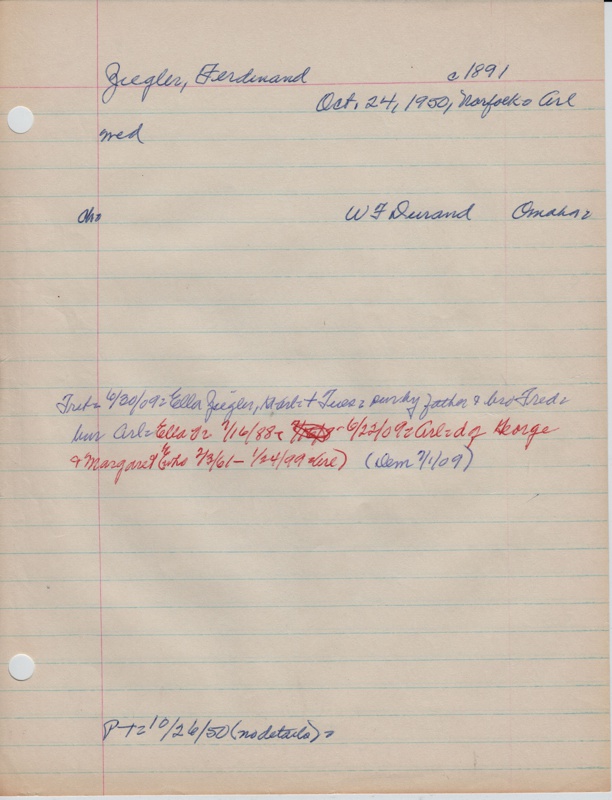 Ziegler, Ferdinand c1891
Oct. 24, 1950, Norfolk= Arl
wed
ch= W F Durand Omaha=
Trib= 6/30/09= Ella Ziegler, + Tues= surv by father & bro Fred=
bur Arl= Ella 7/16/88- 6/22/09= Arl= d of George
& Margaret 3/3/61- 1/24/99 Arl) (Dem 7/1/09)
P-T= 10/26/50 (no details)=